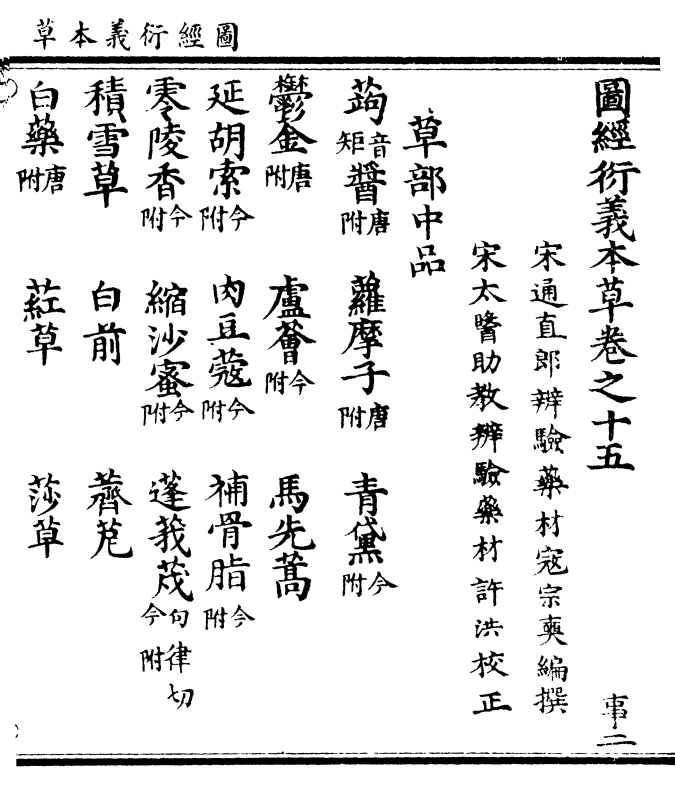 圖經衍義本草
圖經衍義本草卷之十五　事二
宋通直郎辨驗藥材寇宗奭編撰
宋太醫助教辨驗藥材許洪校正
草部中品
蒟音矩醬唐附　蘿摩子唐附　青黛今附
鬱金唐附　盧薈今附　馬先蒿
延胡索今附　肉豆蔻今附　補骨脂今附
零陵香今附　縮沙蜜今附　蓬莪茂旬律切今附
積雪草　白前　薺苨
白藥唐附　葒草　莎草